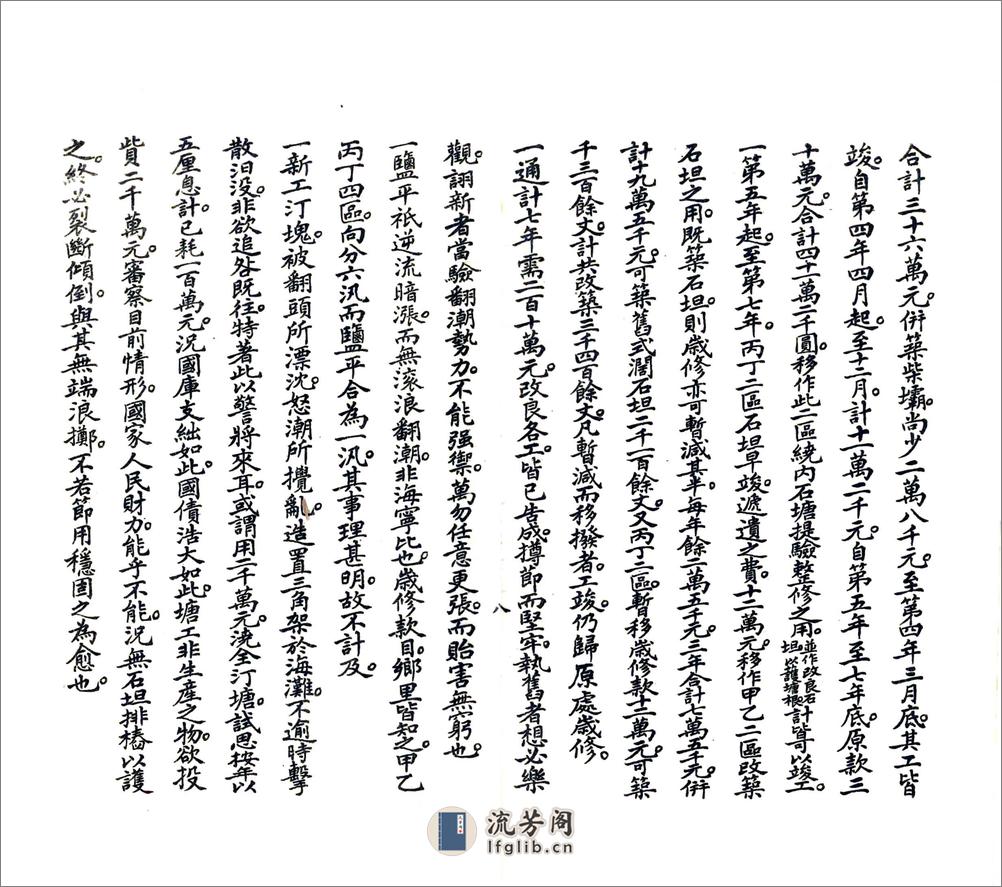 合計三十六萬元。併築柴壩。尚少二萬八千元。至第四年三月底。其工皆
竣。自第四年四月起。至十二月。計十一萬二千元。自第五年至七年底。原款三
十萬元。合計四十一萬二千圓。移作此二區繞內石塘提驗整修之用。並作改良石坦以護塘根計皆可以竣工。
一第五年起。至第七年。丙丁二區石坦早竣。遞遺之費。十二萬元。移作甲乙二區改築
石坦之用。既築石坦。則歲修亦可暫減其半。每年餘二萬五千元。三年合計七萬五千元。併
計十九萬五千元。可築舊式濶石坦二千一百餘丈。又丙丁二區。暫移歲修款十二萬元。可築
千三百餘丈。計共改築三千四百餘丈。凡暫減而移撥者。工竣。仍歸原處歲修。
一通計七年。需二百十萬元。改良各工。皆已告成。撙節而堅牢。執舊者想必樂
觀。詡新者當驗翻潮勢力。不能强禦。萬勿任意更張。而貽害無窮也。
一鹽平祇逆流暗漲。而無滾浪翻潮。非海寧比也。歲修款目。鄉里皆知之。甲乙
丙丁四區。向分六汛。而鹽平合為一汛。其事理甚明。故不計及。
一新工汀塊。被翻頭所漂沈。怒潮所攪亂。造置三角架於海灘。不逾時擊
散汨没。非欲追咎既往。特著此以警將來耳。或謂用二千萬元。澆全汀塘。試思按年以
五厘息計。已耗一百萬元。況國庫支絀如此。國債浩大如此。塘工非生產之物。欲投
貲二千萬元。審察目前情形。國家人民財力。能乎不能。況無石坦排樁以護
之。終必裂斷傾倒。與其無端浪擲。不若節用穩固之為愈也。
八
流芳阁
lfglib.cn